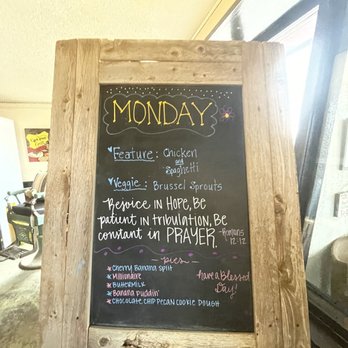 MONDAY
Feature: Chicken
and
Spaghetti
Veggie: Brussel Sprouts
Rejoice in Hope, Be
patient in tribulation, Be
constant in PRAYER. -Romans
12:12
-pies-
*Cherry Banana Split
*Millionaire
*Buttermilk
*Banana Puddin'
*Chocolate Chip Pecan Cookie Dough
Have a Blessed
Day!